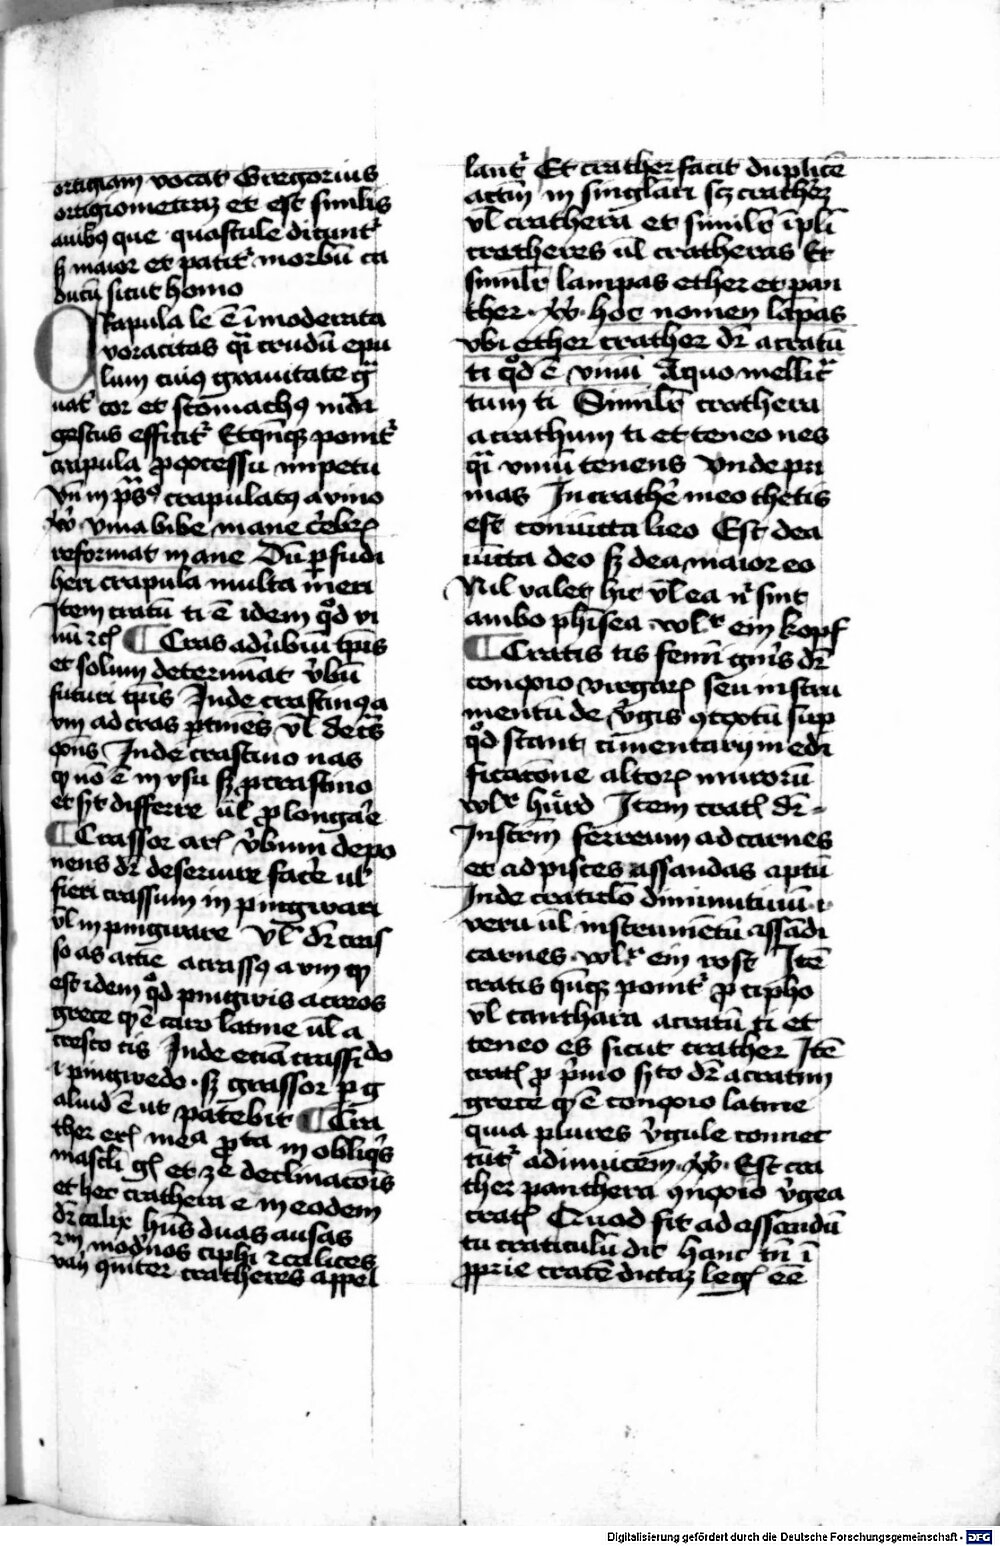 ortigiam vocat Gregorius
ortigiometraz et est similis
auibꝰ que quastule dicunt᷑
sꝫ maior et patit᷑ morbū ca
ducū sicut homo
Crapula le ē īmoderata
voracitas qͣi crudū epu
lum cuiꝰ grauitate gͣ
uat᷑ cor et stomachꝰ indi
gestus efficit᷑ Et qn̄qꝫ ponit᷑
crapula ꝓ excessu impetu
vn̄ in ps̄ crapulatꝰ a vino
vina bibe mane
reformat mane Dū ꝑfudi
heri crapula multa meri
Item cratū ti ē idem qͦd vi
nū ⁊cꝭ Cras aduͥbiū tp̄is
et solum determīat v̓bū
futuri tp̄is Inde crastinꝰ a
um ad cras ꝑtinēs vl̄ de cͣs
Inde crastino nas
qꝫ nō ē in vsu sꝫ ꝓcrastino
et sꝫt differre ūl ꝓlongāe
Crassor arꝭ v̓bum depo
nens dr̄ deseruire facēe ul̓
fieri crassum in pingwari
vl̄ inpingware vl̓ dr̄ cras
so as actīe a crassꝰ a um qꝫ
est idem qͦd pingwis a creos
grece qꝫ ē caro latine ūl a
cresco cis Inde eciā crassido
i pingwedo sꝫ grassor ꝑ g
aliud ē ut patebit Cra
ther erꝭ meᵃ ꝓta in obliqͥs
mascl̄i gꝭ et ꝫe declinacōis
et hec crathera e in eodem
dr̄ calix hn̄s duas ansas
modͦnos ciphi ⁊ calices
cratheres appel
lant᷑ Et crather facit duplicē
actm̄ in singl̄ari scꝫ crathez
vl̄ crathera et similr̄ ī pl̄i
cratheres ūl cratheras Et
similr̄ lampas ether et pan
ther hoc nomen lāpas
vbi ether crather dr̄ a cratū
ti qͦd ē vinū A quo mellicͣ
tum ti Similr̄ crathera
a crathum ti et teneo nes
qͣi vinū tenens Vnde pri
mas In crathēe meo thetis
est coniūcta lieo Est dea
iūcta deo sꝫ dea maior eo
Nil valet hic vl̄ ea nͥ sint
ambo ph̄isea wlͬ ein kopf
Cratis tis femī gn̄is dr̄
conexio virgarꝭ seu instru
mentū de v̓gis ꝯtextū sup
qͦd stant cimentarij in edi
ficatōne altorꝭ murorū
wlͬ hürd Item cratꝭ dr̄
Instrm̄ ferreum ad carnes
et ad pisces assandas aptū
Inde craticlō diminutiuū i
veru ūl instrumētū assādi
carnes wlͬ ein rost Itē
cratis qn̄qꝫ ponit᷑ ꝓ cipho
vl̄ canthara a cratū ti et
teneo es sicut crather Itē
cratꝭ ꝓ pͥmo sꝫto dr̄ a cratim
grece qꝫ ē conexio latine
quia plures v̓gule connec
tūt᷑ adinuicem Est cra
ther panthera ꝯnexio v̓gea
cratꝭ Quod fit ad assandū
tu craticulū dic hanc tn̄ ī
ꝓprie cratē dictaz legꝭ eē
Digitalisierung gefördert durch die Deutsche Forschungsgemeinschaft - DFG